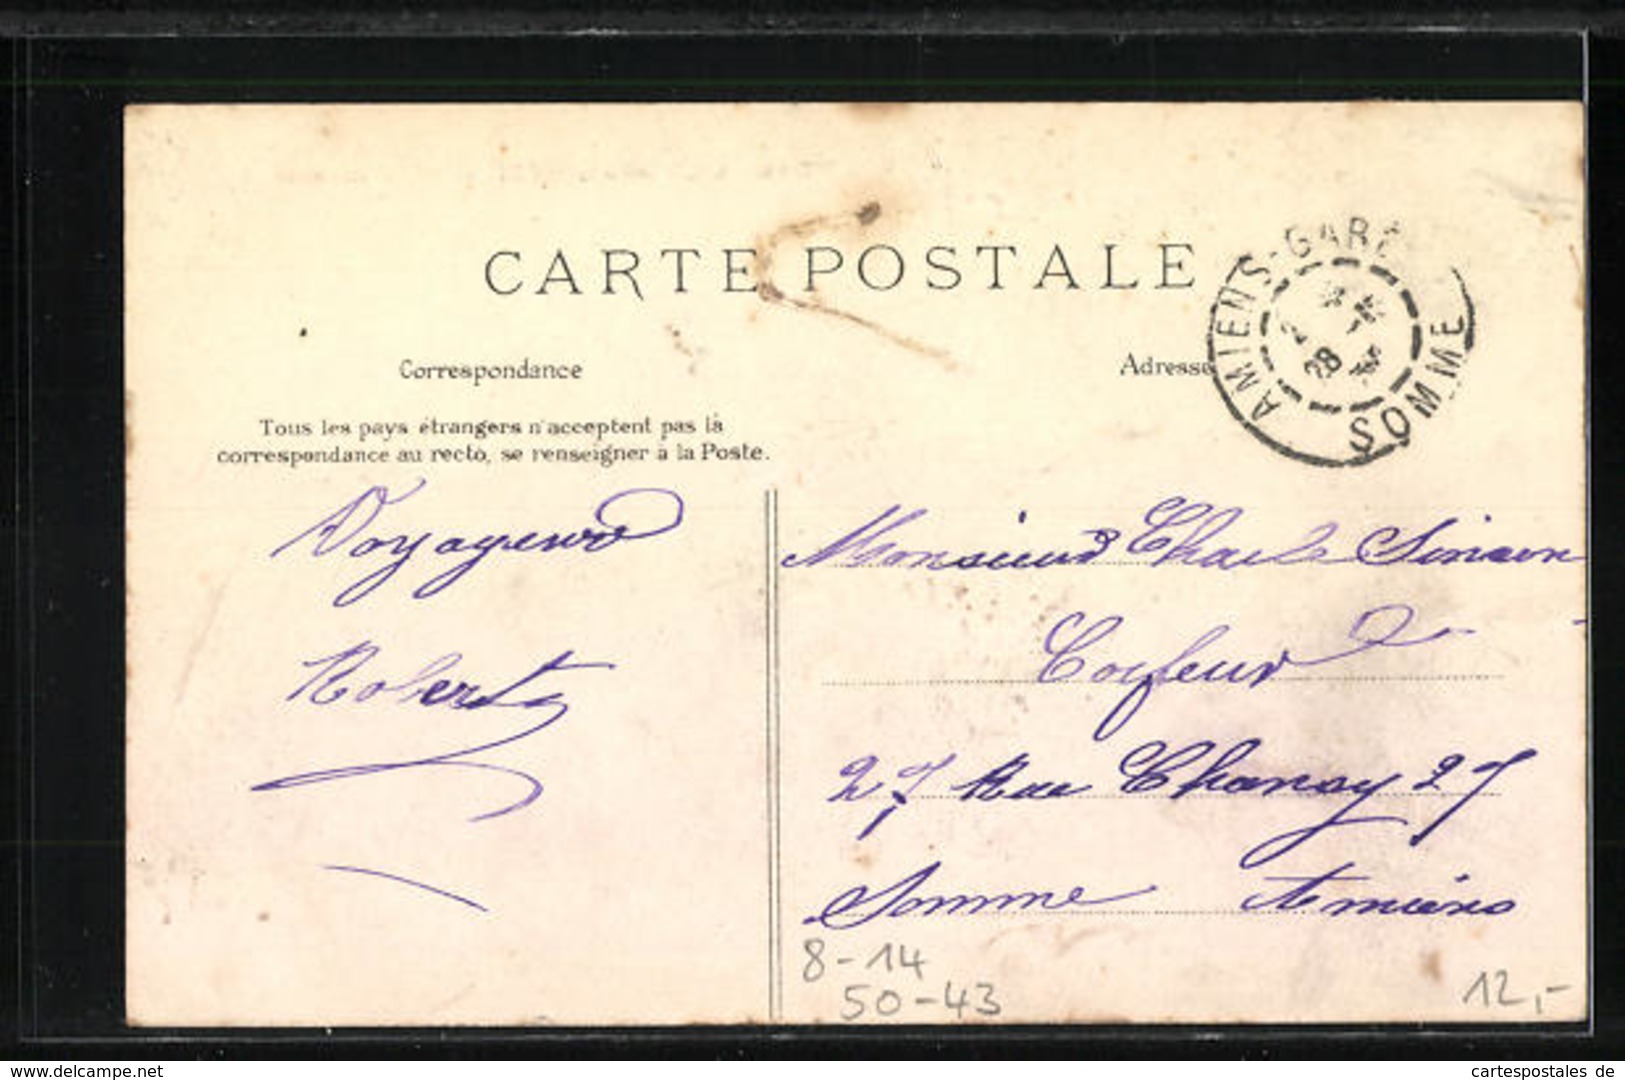 CARTE POSTALE
AMIENS-GARE
SOMME
28
Correspondance
Adresse
Tous les pays étrangers n'acceptent pas la
correspondance au recto, se renseigner à la Poste.
Voyageur
Robert
Monsieur Charle Simon
Coifeur
27 Rue Chanzy 27
Somme Amiens
8-14
50-43
12,-
www.delcampe.net
cartespostales de